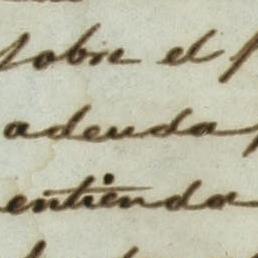 sobre el
adeuda
entienda